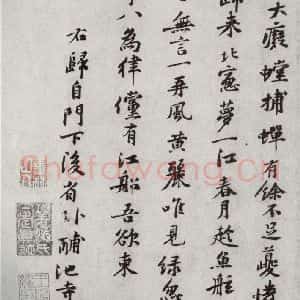 大癡螳捕蟬有餘不足夔憐
歸來北窻夢一江春月趂魚船
無言一再風黃鸝唯見綠
八為律儻有江船吾欲東
右歸自門下後省卧酺池寺
Shufawang.Cn